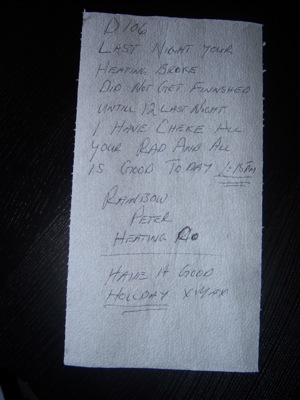 D106
LAST NIGHT YOUR
HEATING BROKE
DID NOT GET FINNSHED
UNTILL 12 LAST NIGHT
I HAVE CHEKE ALL
YOUR RAD AND ALL
IS GOOD TODAY
RAINBOW
PETER
HEATING
HAVE A GOOD
HOLLDAY